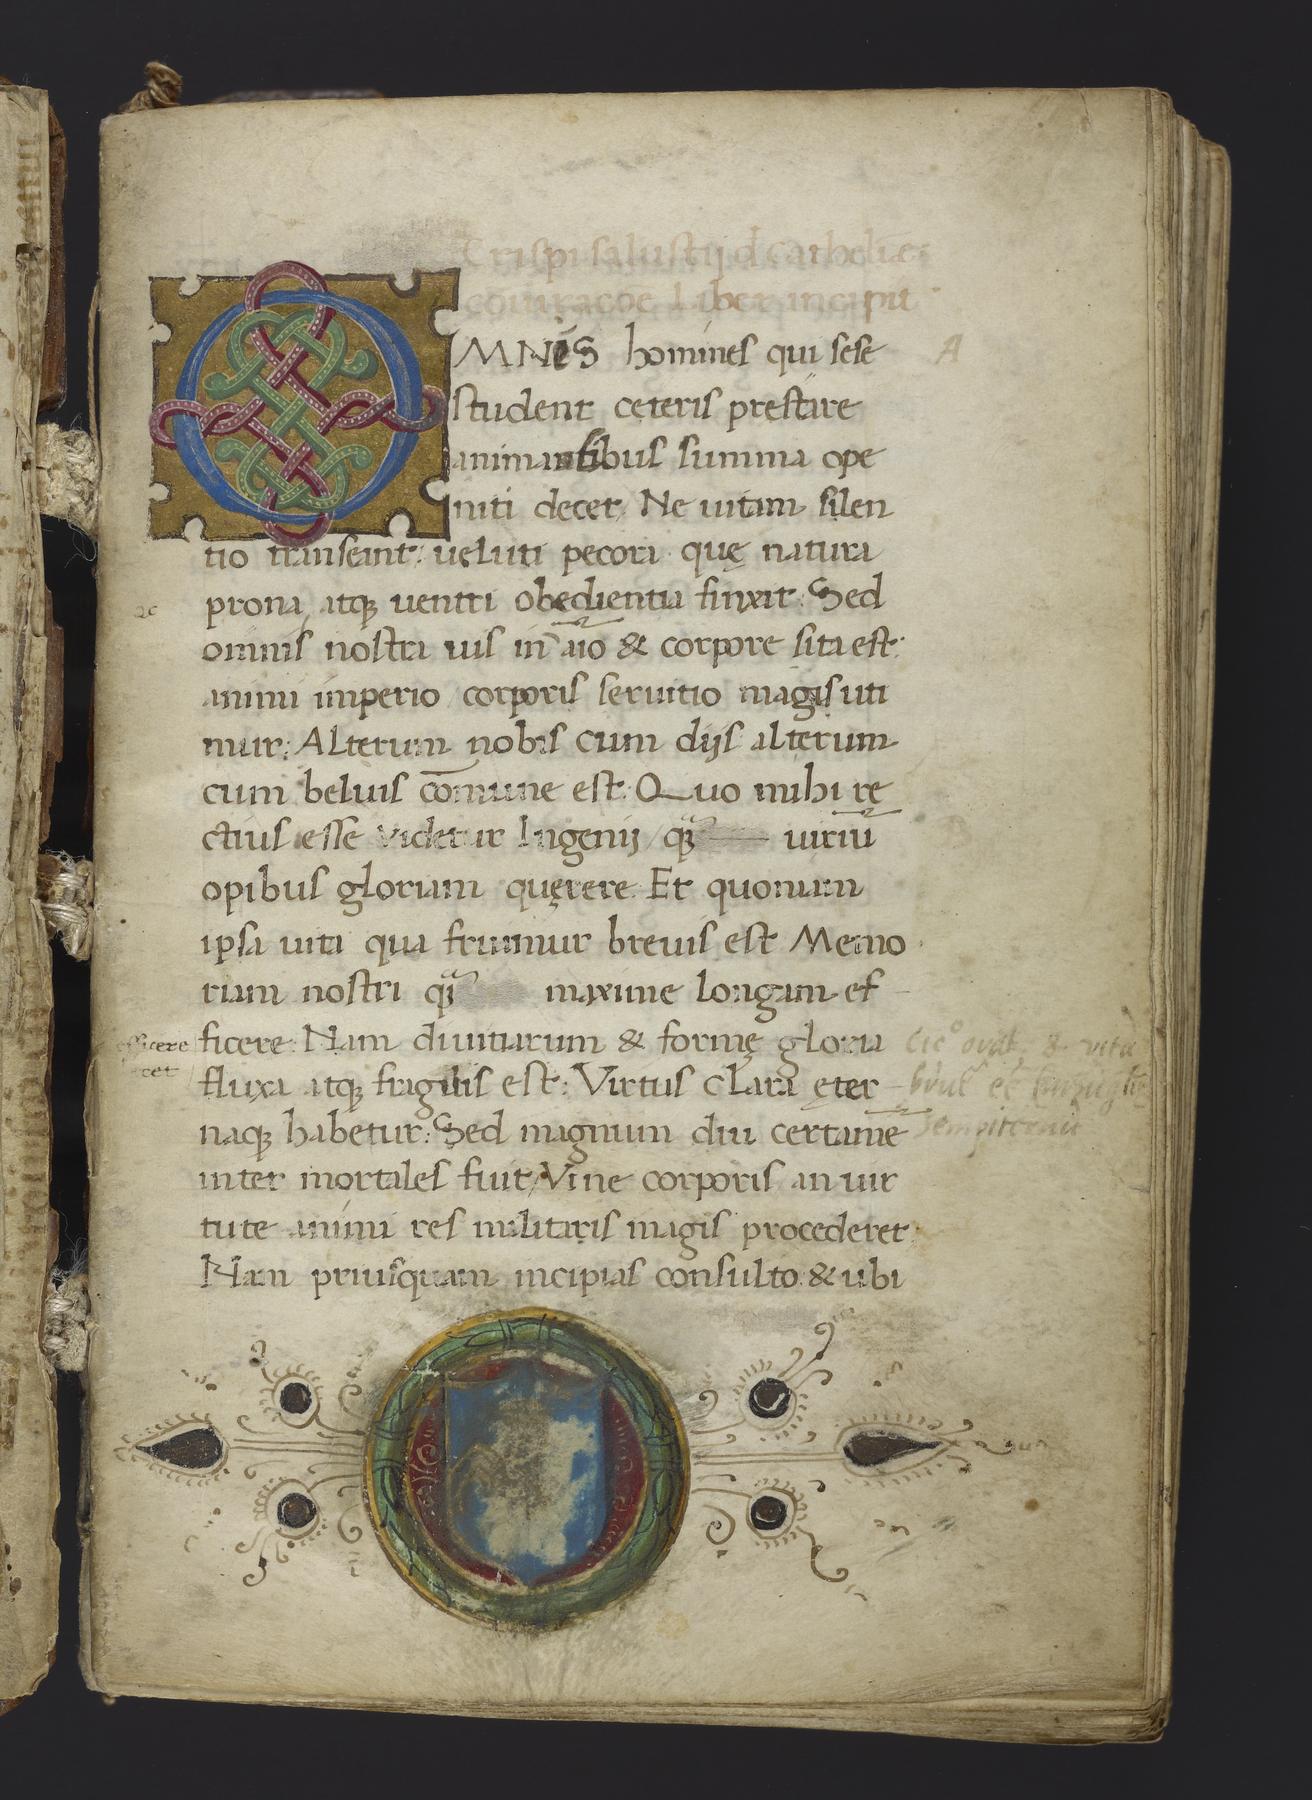 Crispi salustij d Cathelie
coniuracõe Liber incipit
OMNIS homines qui sese
A
student ceteris prestare
animantibus summa ope
niti decet. Ne uitam silen
tio transeant: ueluti pecora quę natura
prona atq; uentri obedientia finxit: Sed
omnis nostra uis in aĩo & corpore sita est:
animi imperio corporis seruitio magis uti
mur: Alterum nobis cum dijs alterum
cum beluis cõmune est: Quo mihi re
ctius esse videtur Ingenij quã uiriũ
opibus gloriam quęrere. Et quoniam
ipsa uita qua fruimur breuis est Memo
riam nostri quã maxime longam ef
ficere: Nam diuitiarum & formę gloria
efficere
fluxa atq; fragilis est: Virtus clara eter
naq; habetur: Sed magnum diu certamẽ
sempiternũ
inter mortales fuit/Vi ne corporis an uir
tute animi res militaris magis procederet:
Nam priusquam incipias consulto: & ubi